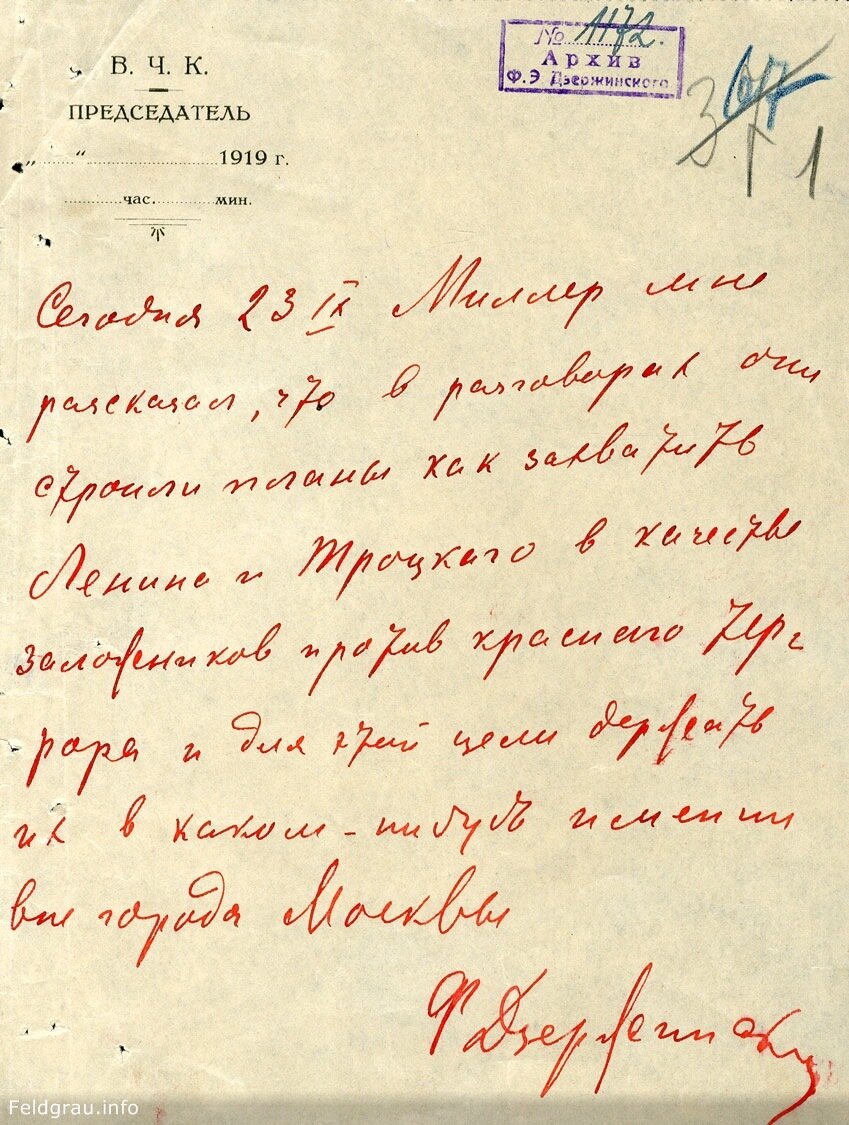 В. Ч. К.
ПРЕДСЕДАТЕЛЬ
„......“....................1919 г.
............час.............мин.
№ 1172.
Архив
Ф. Э. Дзержинского
1
Сегодня 23 IX Миллер мне
рассказал, что в разговорах они
строили планы как захватить
Ленина и Троцкаго в качестве
заложников против красного тер-
рора и для этой цели держать
их в каком-нибудь имении
вне города Москвы
Ф Дзержинский
Feldgrau.info